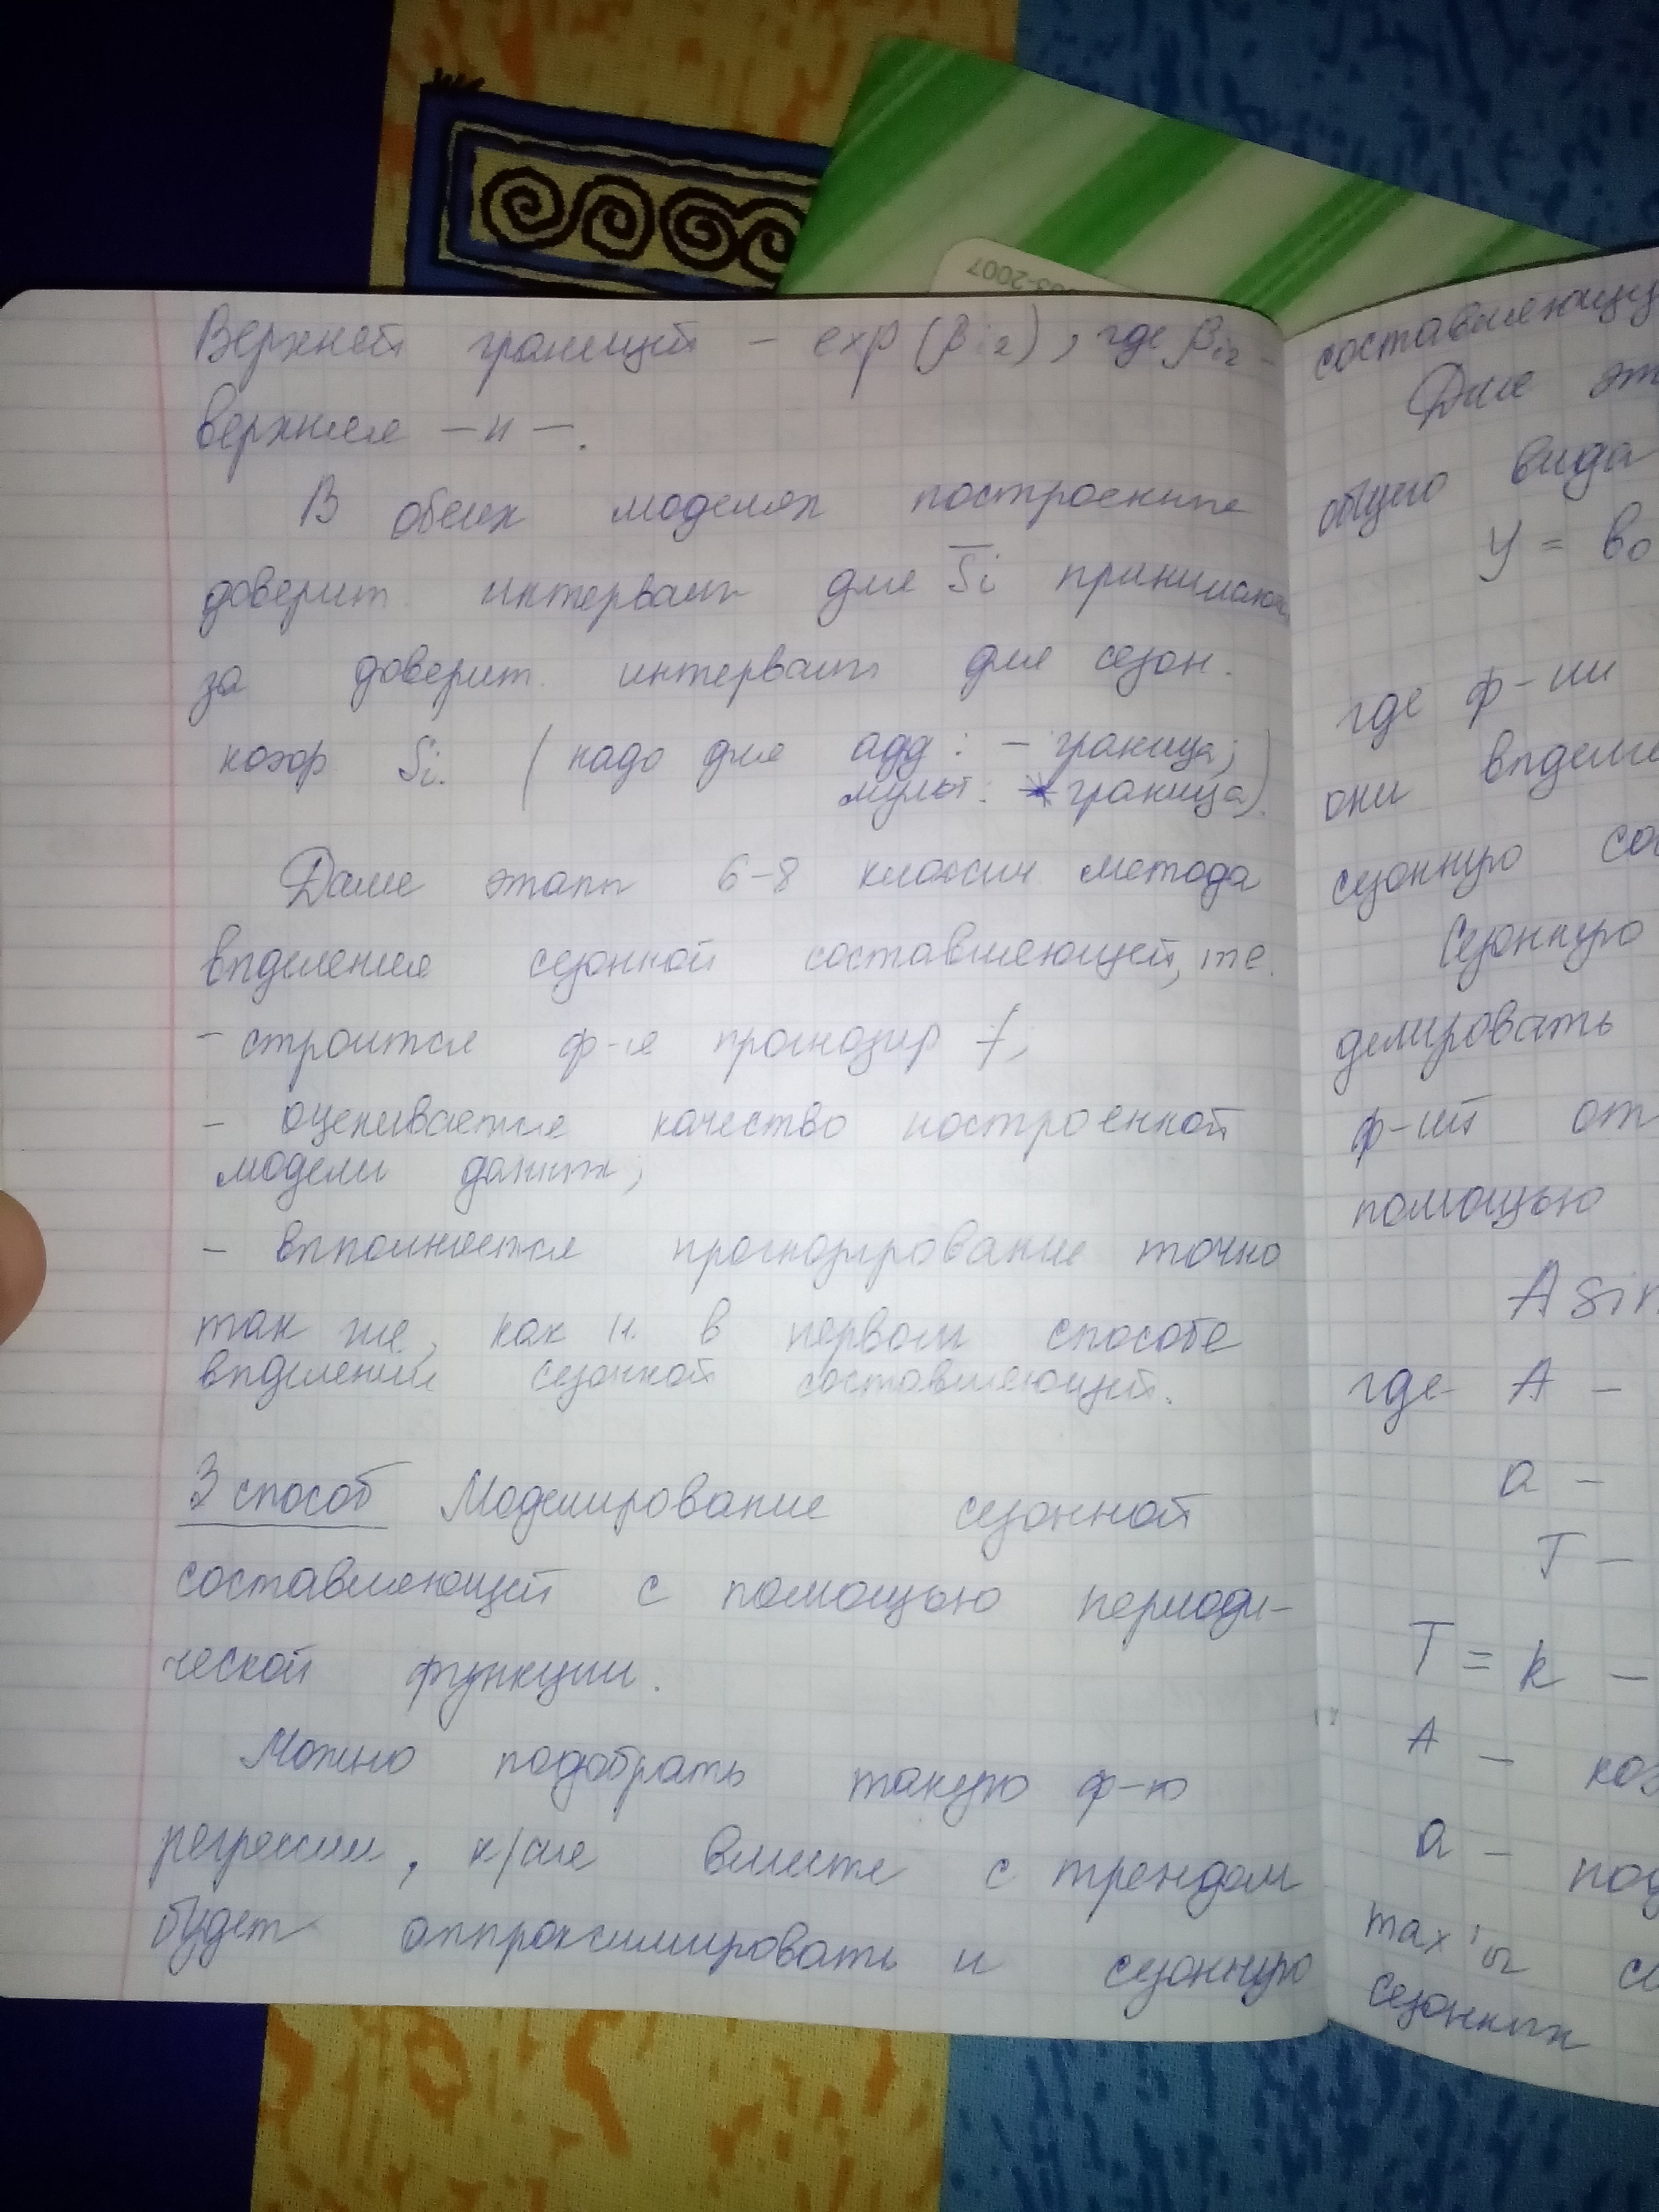 Верхней границей – exp(βi2), где βi2 –
верхняя –"–.
В обеих моделях построенные
доверит. интервалы для S̅i принимают
за доверит. интервалы для сезон.
коэф Si. (надо для адд: – граница;
мульт: * граница).
Далее этапы 6–8 классич. метода
выделения сезонной составляющей, т.е.
– строится ф-я прогнозир f;
– оценивается качество построенной
модели данных;
– выполняется прогнозирование точно
так же, как и в первом способе
выделения сезонной составляющей.
3 способ Моделирование сезонной
составляющей с помощью периоди-
ческой функции.
Можно подобрать такую ф-ю
регрессии, к/ая вместе с трендом
будет аппроксимировать и сезонную
составляющу
Для эт
общего вида
y = b0
где ф-ии
они выделя
сезонную сос
Сезонную
делировать
ф-ий от
помощью
A sin
где A –
a –
T –
T = k –
A – коэ
a – под
max'ы с
сезонных
003-2007